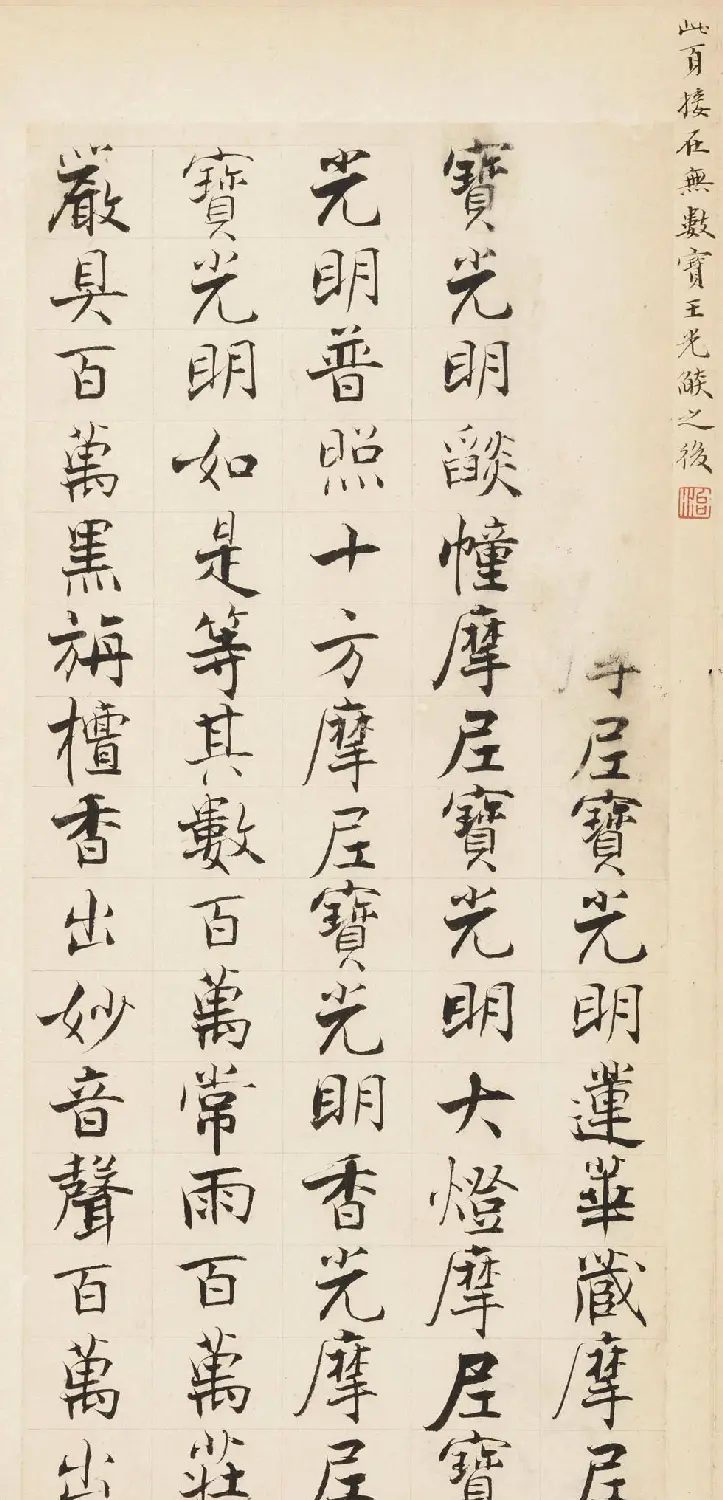 此頁接在無數寶王光燄之後
尼寶光明蓮華藏摩尼
寶光明燄幢摩尼寶光明大燈摩尼寶
光明普照十方摩尼寶光明香光摩尼
寶光明如是等其數百萬常雨百萬莊
嚴具百萬黑旃檀香出妙音聲百萬出